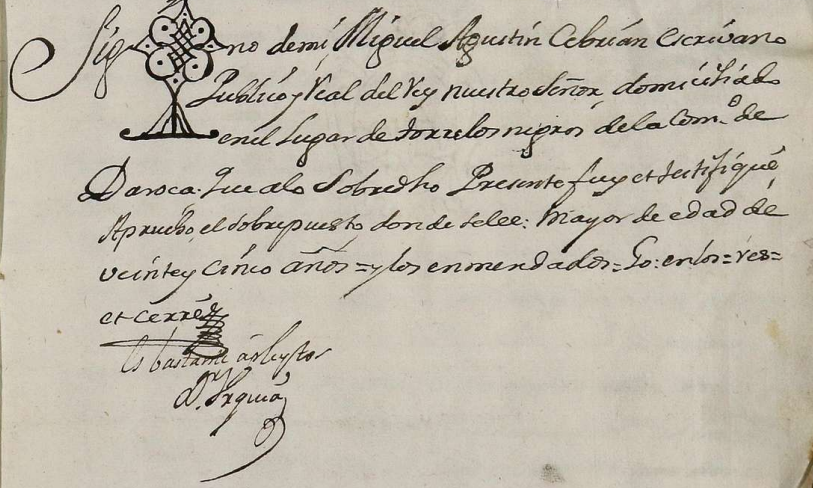 Sig no de mi Miguel Agustin Cebrián escrivano
Publico y Real del Rey nuestro Señor domiciliado
en el Lugar de torrelosnegros de la Com.ᵈ de
Daroca. que a lo Sobredho Presente fuy et testifiqué
Apruebo el sobrepuesto donde se lee: mayor de edad de
veinte y cinco años = y los enmendados = Lo: en los = res =
et cerré
Es bastante
D.ʳ